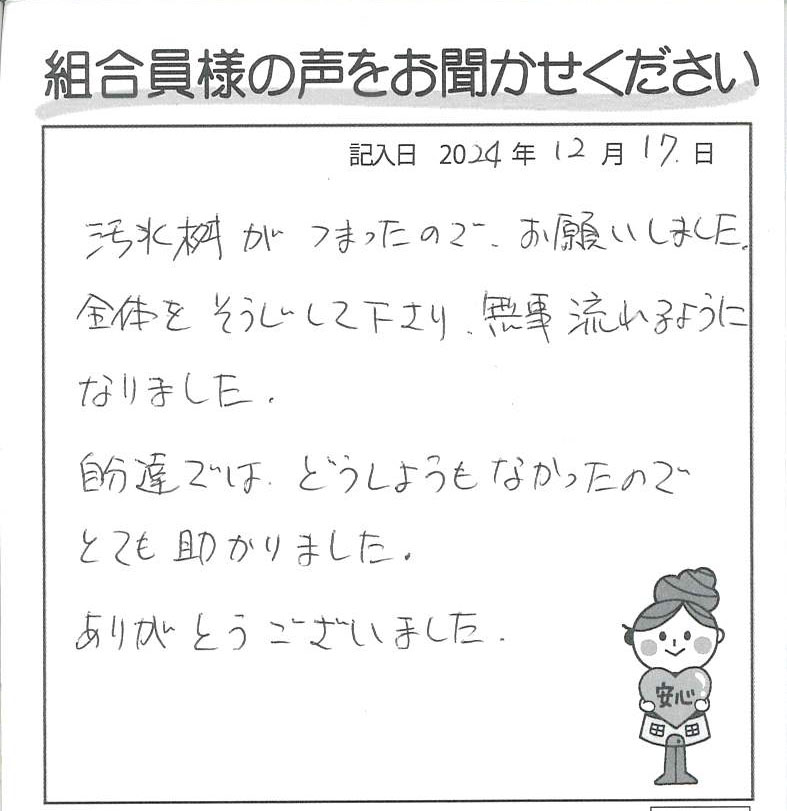 組合員様の声をお聞かせください
記入日 2024年 12月 17日
汚水桝がつまったので、お願いしました。
全体をそうじして下さり、無事流れるように
なりました。
自分達では、どうしようもなかったので
とても助かりました。
ありがとうございました。
安心